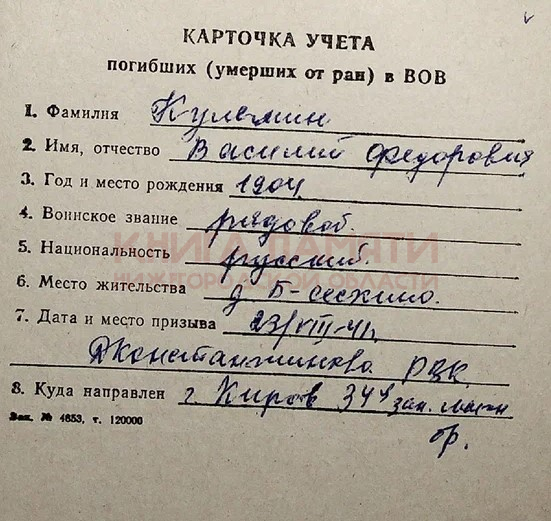 КАРТОЧКА УЧЕТА
погибших (умерших от ран) в ВОВ
1. Фамилия Кулемин
2. Имя, отчество Василий Федорович
3. Год и место рождения 1904
4. Воинское звание рядовой.
5. Национальность русский
КНИГА ПАМЯТИ
НИЖЕГОРОДСКОЙ ОБЛАСТИ
6. Место жительства д. Б-сескино.
7. Дата и место призыва 23/VIII-41г.
Дконстантиново РВК.
8. Куда направлен г. Киров 34 зап.
Зак. № 4653, т. 120000
бр.